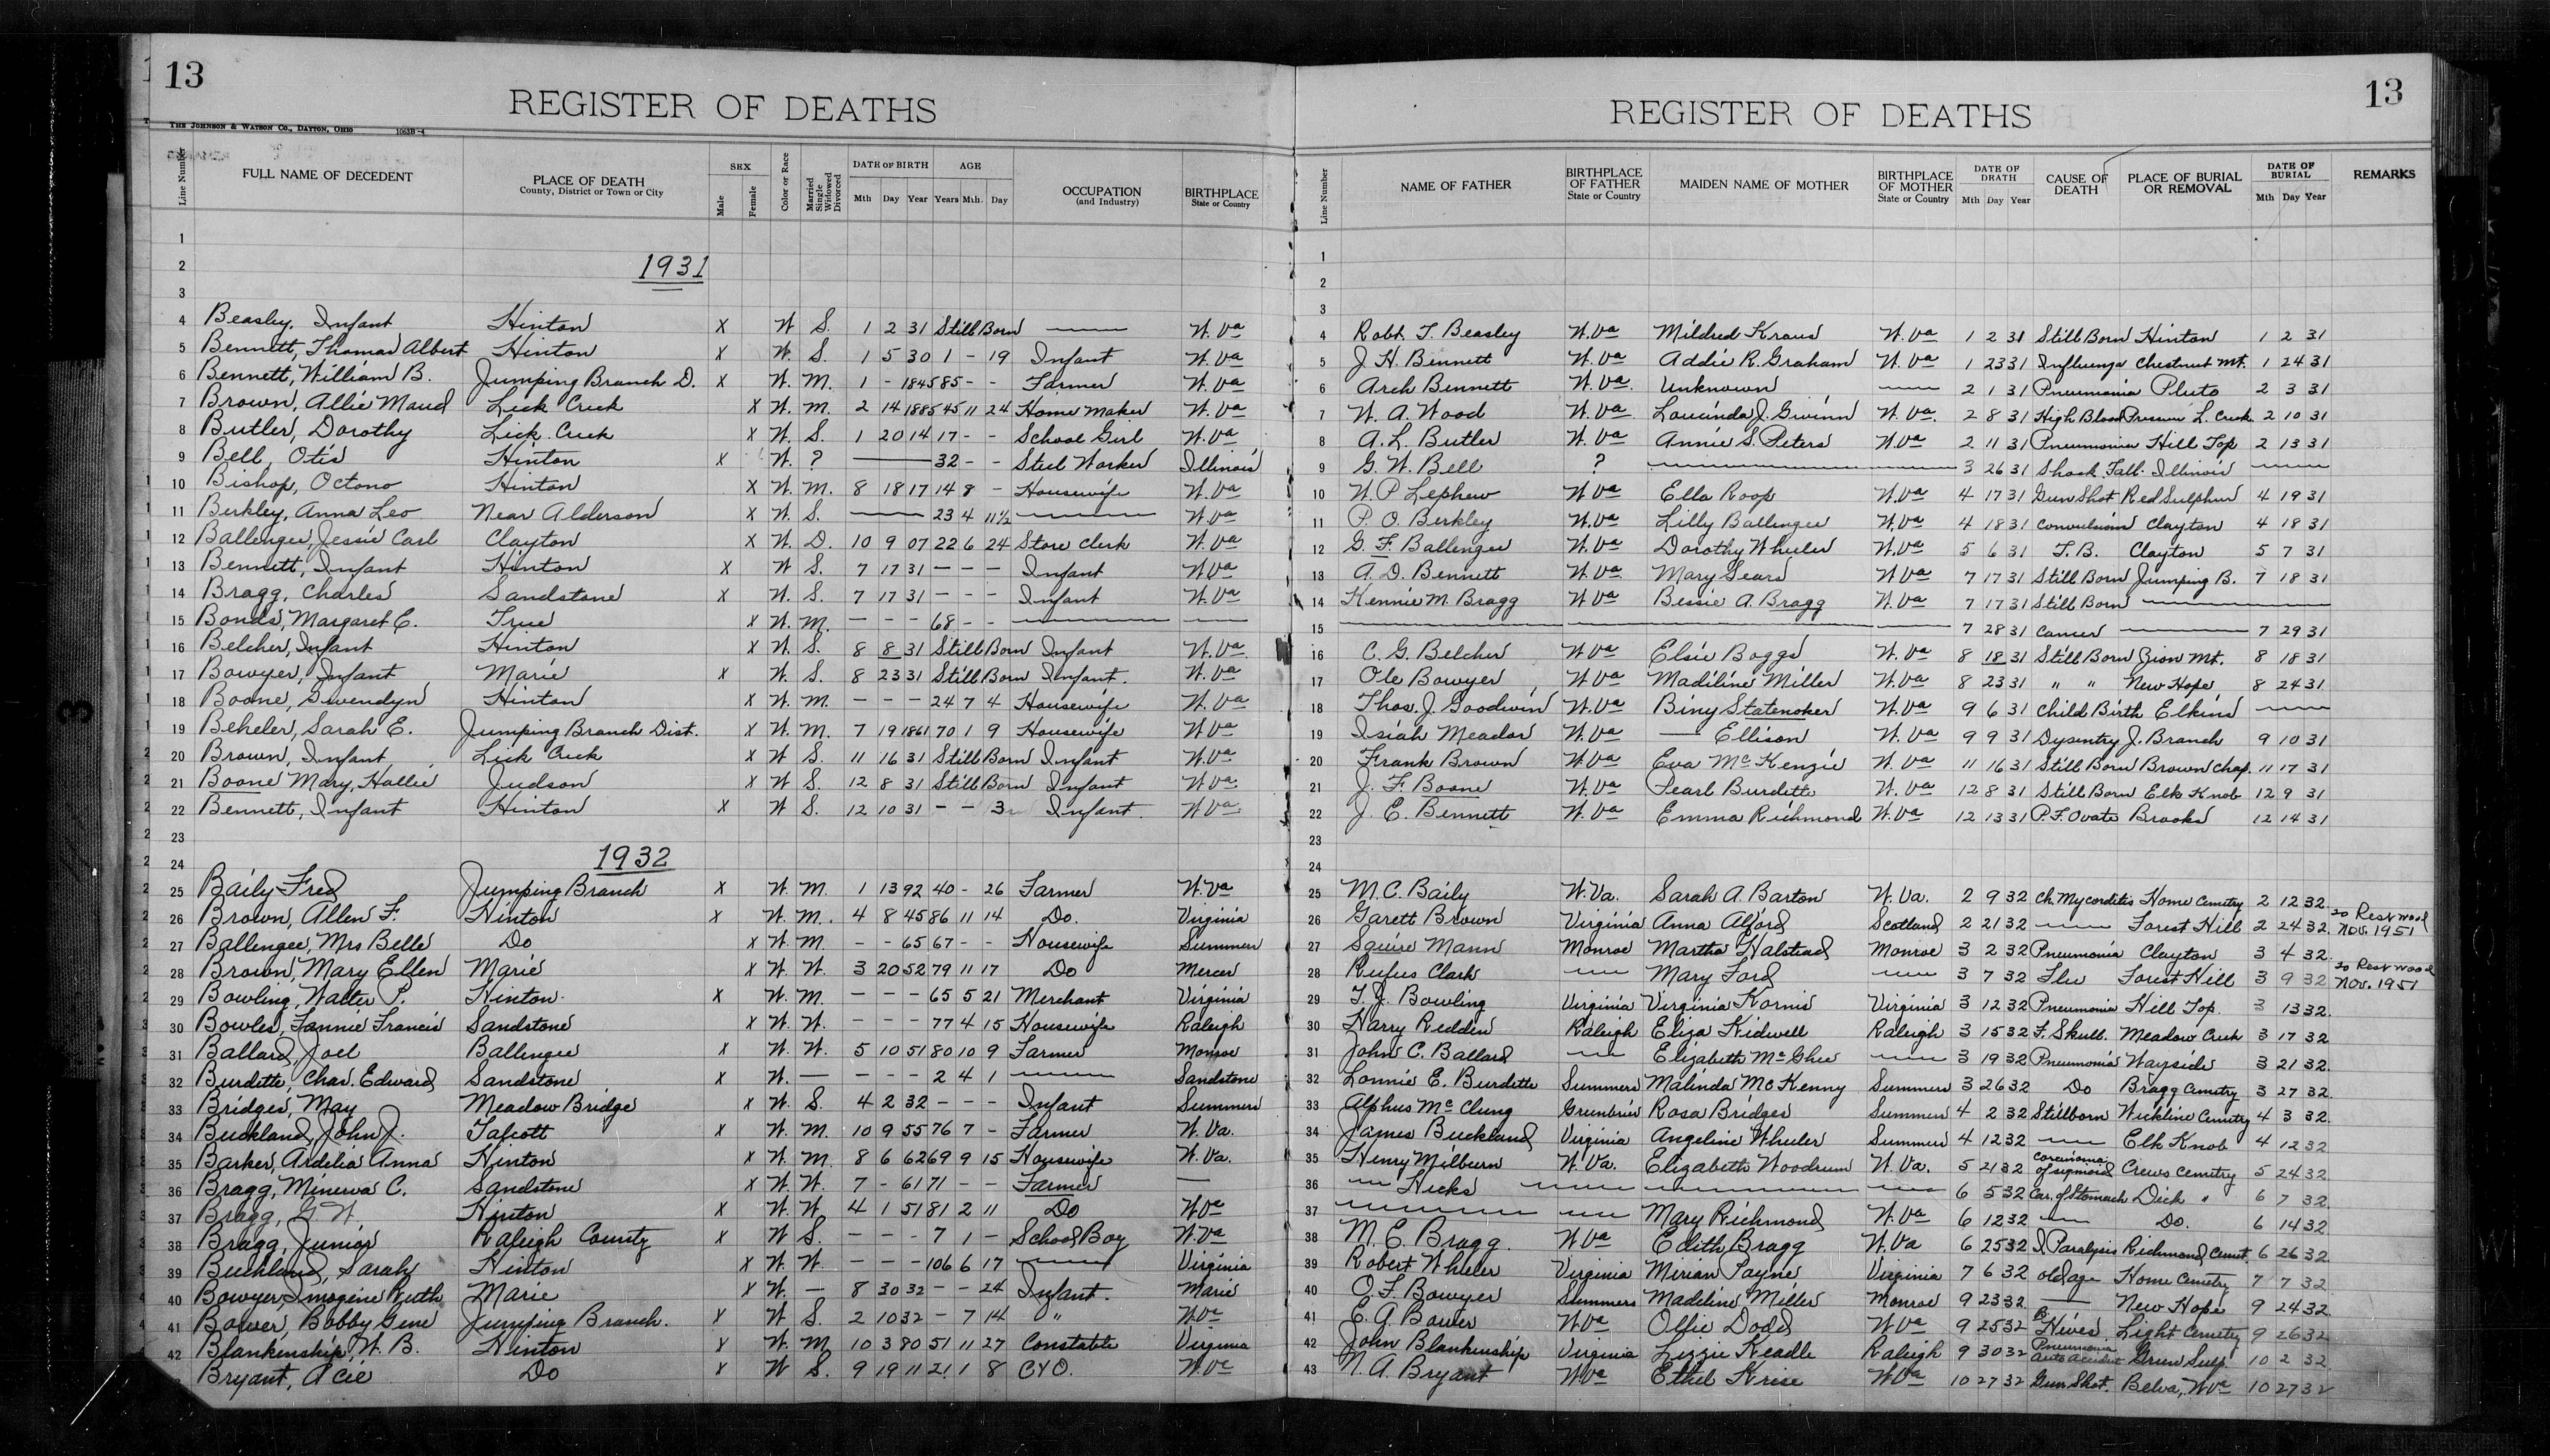 13
REGISTER OF DEATHS
THE JOHNSON & WATSON CO., DAYTON, OHIO 1063B-4
Line Number FULL NAME OF DECEDENT PLACE OF DEATH County, District or Town or City SEX Male Female Color or Race Married Single Widowed Divorced DATE OF BIRTH Mth Day Year AGE Years Mth. Day OCCUPATION (and Industry) BIRTHPLACE State or Country
1
2 1931
3
4 Beasley, Infant Hinton X W S. 1 2 31 Still Born — W.Va
5 Bennett, Thomas Albert Hinton X W. S. 1 5 30 1 - 19 Infant W.Va
6 Bennett, William B. Jumping Branch D. X W. M. 1 - 1845 85 - - Farmer W.Va
7 Brown, Allie Maud Lick Creek X W. M. 2 14 1885 45 11 24 Home Maker W.Va
8 Butler, Dorothy Lick Creek X W. S. 1 20 14 17 - - School Girl W.Va
9 Bell, Otis Hinton X W. ? — 32 - - Steel Worker Illinois
10 Bishop, Octono Hinton X W. M. 8 18 17 14 8 - Housewife W.Va
11 Berkley, Anna Leo Near Alderson X W. S. — 23 4 11½ — W.Va
12 Ballengee, Jessie Carl Clayton X W. D. 10 9 07 22 6 24 Store Clerk W.Va
13 Bennett, Infant Hinton X W S. 7 17 31 - - - Infant W.Va
14 Bragg, Charles Sandstone X W. S. 7 17 31 - - - Infant W.Va
15 Bonds, Margaret C. True X W. M. - - - 68 - - — —
16 Belcher, Infant Hinton X W. S. 8 8 31 Still Born Infant W.Va.
17 Bowyer, Infant Marie X W. S. 8 23 31 Still Born Infant. W.Va
18 Boone, Gwendyn Hinton X W. M. - - - 24 7 4 Housewife W.Va
19 Beheler, Sarah E. Jumping Branch Dist. X W. M. 7 19 1861 70 1 9 Housewife W.Va
20 Brown, Infant Lick Creek X W S. 11 16 31 Still Born Infant W.Va
21 Boone Mary, Hallie Judson X W S. 12 8 31 Still Born Infant W.Va
22 Bennett, Infant Hinton X W S. 12 10 31 - - 3 Infant. W.Va
23
24 1932
25 Baily Fred Jumping Branch X W. M. 1 13 92 40 - 26 Farmer W.Va
26 Brown, Allen F. Hinton X W. M. 4 8 45 86 11 14 Do. Virginia
27 Ballengee, Mrs Belle Do X W. M. - - 65 67 - - Housewife Summers
28 Brown, Mary Ellen Marie X W. W. 3 20 52 79 11 17 Do Mercer
29 Bowling, Walter P. Hinton X W. M. - - - 65 5 21 Merchant Virginia
30 Bowles, Fannie Francis Sandstone X W. W. - - - 77 4 15 Housewife Raleigh
31 Ballard, Joel Ballengee X W. W. 5 10 51 80 10 9 Farmer Monroe
32 Burdette, Chas. Edward Sandstone X W. — - - - 2 4 1 — Sandstone
33 Bridges, May Meadow Bridge X W. S. 4 2 32 - - - Infant Summers
34 Buckland, John J. Talcott X W. M. 10 9 55 76 7 - Farmer W.Va.
35 Barker, Ardelia Anna Hinton X W. M. 8 6 62 69 9 15 Housewife W.Va.
36 Bragg, Minerva C. Sandstone X W. W. 7 - 61 71 - - Farmer —
37 Bragg, G W Hinton X W. W. 4 1 51 81 2 11 Do W.Va
38 Bragg, Junior Raleigh County X W S. - - - 7 1 - School Boy W.Va
39 Buckland, Sarah Hinton X W. W. - - - 106 6 17 — Virginia
40 Bowyer, Imogine Ruth Marie X W. — 8 30 32 - - 24 Infant. Marie
41 Bower, Bobby Gene Jumping Branch. X W S. 2 10 32 - 7 14 " W.Va
42 Blankinship, W. B. Hinton X W. M 10 3 80 51 11 27 Constable Virginia
Bryant, Acie Do X W S. 9 19 11 21 1 8 C & O. W.Va
13
REGISTER OF DEATHS
Line Number NAME OF FATHER BIRTHPLACE OF FATHER State or Country MAIDEN NAME OF MOTHER BIRTHPLACE OF MOTHER State or Country DATE OF DEATH Mth Day Year CAUSE OF DEATH PLACE OF BURIAL OR REMOVAL DATE OF BURIAL Mth Day Year REMARKS
1
2
3
4 Robt. T. Beasley W.Va Mildred Kraus W.Va 1 2 31 Still Born Hinton 1 2 31
5 J. H. Bennett W.Va Addie R. Graham W.Va 1 23 31 Influenza Chestnut Mt. 1 24 31
6 Arch Bennett W.Va. Unknown — 2 1 31 Pneumonia Pluto 2 3 31
7 W. A. Wood W.Va Loucinda J. Gwinn W.Va. 2 8 31 High Blood Pressure L. Creek 2 10 31
8 A. L. Butler W.Va Annie S. Peters W.Va 2 11 31 Pneumonia Hill Top 2 13 31
9 G. W. Bell ? — — 3 26 31 Shock Fall. Illinois —
10 W. P Lephew W.Va Ella Roop W.Va 4 17 31 Gun Shot Red Sulphur 4 19 31
11 P. O. Berkley W.Va Lilly Ballengee W.Va 4 18 31 Convulsions Clayton 4 18 31
12 G. F. Ballengee W.Va Dorothy Wheeler W.Va 5 6 31 T.B. Clayton 5 7 31
13 A. D. Bennett W.Va. Mary Sears W.Va 7 17 31 Still Born Jumping B. 7 18 31
14 Kennie M. Bragg W.Va Bessie A. Bragg W.Va 7 17 31 Still Born —
15 — — — — 7 28 31 Cancer — 7 29 31
16 C. G. Belcher W.Va Elsie Boggs W.Va 8 18 31 Still Born Zion Mt. 8 18 31
17 Ole Bowyer W.Va Madiline Miller W.Va 8 23 31 " " New Hope 8 24 31
18 Thos. J. Goodwin W.Va Biny Statenoker W.Va 9 6 31 Child Birth Elkins —
19 Isiah Meador W.Va — Ellison W.Va 9 9 31 Dysentry J. Branch 9 10 31
20 Frank Brown W.Va Eva McKenzie W.Va 11 16 31 Still Born Brown Chap. 11 17 31
21 J. F. Boone W.Va Pearl Burdette W.Va 12 8 31 Still Born Elk Knob 12 9 31
22 J. E. Bennett W.Va Emma Richmond W.Va 12 13 31 P.F. Ovate Brooks 12 14 31
23
24
25 M. C. Baily W.Va. Sarah A. Barton W.Va. 2 9 32 Ch. Mycorditis Home Cemetry 2 12 32
26 Garett Brown Virginia Anna Alford Scotland 2 21 32 — Forest Hill 2 24 32 to Restwood Nov. 1951
27 Squire Mann Monroe Martha Halstead Monroe 3 2 32 Pneumonia Clayton 3 4 32
28 Rufus Clark — Mary Ford — 3 7 32 Flu Forest Hill 3 9 32 to Restwood Nov. 1951
29 T. J. Bowling Virginia Virginia Kornis Virginia 3 12 32 Pneumonia Hill Top. 3 13 32
30 Harry Reddin Raleigh Eliza Kidwell Raleigh 3 15 32 F. Skull. Meadow Creek 3 17 32
31 John C. Ballard — Elizabeth McGhee — 3 19 32 Pneumonia Wayside 3 21 32
32 Lonnie E. Burdette Summers Malinda McKenny Summers 3 26 32 Do Bragg Cemetry 3 27 32
33 Alphus McClung Greenbrier Rosa Bridges Summers 4 2 32 Stillborn Wickline Cemetry 4 3 32
34 James Buckland Virginia Angeline Wheeler Summers 4 12 32 — Elk Knob 4 12 32
35 Henry Milburn W.Va. Elizabeth Woodrum W.Va. 5 21 32 Carcinoma of sigmoid Crews Cemetry 5 24 32
36 — Hicks — — — 6 5 32 Car. of Stomach Dick " 6 7 32
37 — — Mary Richmond W.Va 6 12 32 — Do. 6 14 32
38 M. E. Bragg. W.Va Edith Bragg W.Va 6 25 32 I Paralysis Richmond Cemet. 6 26 32
39 Robert Wheeler Virginia Merian Payne Virginia 7 6 32 old age Home Cemetry 7 7 32
40 O. F. Bowyer Summers Madeline Miller Monroe 9 23 32 — New Hope 9 24 32
41 E. A. Bower W.Va Ollie Dodd W.Va 9 25 32 B. Hives Light Cemetry 9 26 32
42 John Blankinship Virginia Lizzie Keadle Raleigh 9 30 32 Pneumonia Auto Accident Green Sulp. 10 2 32
43 N. A. Bryant W.Va Ethel Krise W.Va 10 27 32 Gun Shot. Belva, W.Va 10 27 32